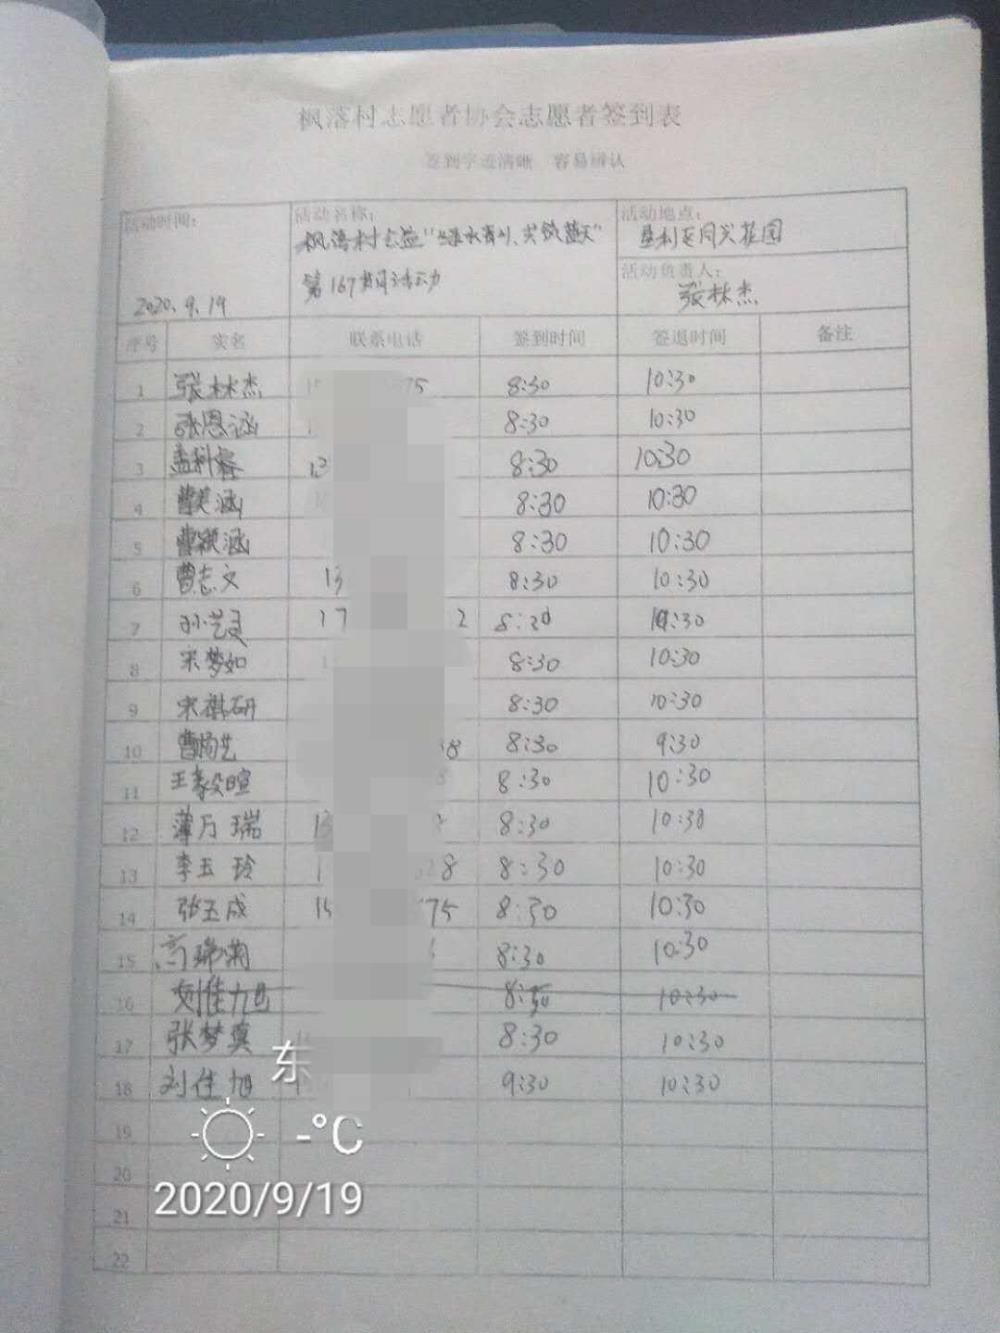 枫落村志愿者协会志愿者签到表
签到字迹清晰 容易辨认
活动时间: 活动名称: 活动地点:
枫落村公益"绿水青山、共筑蓝天" 垦利区同兴花园
第167期活动 活动负责人:
2020.9.19 张林杰
序号 实名 联系电话 签到时间 签退时间 备注
1 张林杰 75 8:30 10:30
2 张恩涵 8:30 10:30
3 孟科睿 13 8:30 10:30
4 曹美涵 8:30 10:30
5 曹颖涵 8:30 10:30
6 曹志文 13 8:30 10:30
7 孙艺 17 2 8:30 10:30
8 宋梦如 8:30 10:30
9 宋祺研 8:30 10:30
10 曹杨艺 38 8:30 9:30
11 王毅暄 8 8:30 10:30
12 薄万瑞 13 8:30 10:30
13 李玉玲 1 28 8:30 10:30
14 张玉成 15 75 8:30 10:30
15 高瑞瀚 8:30 10:30
16 刘佳旭 8:30 10:30
17 张梦真 8:30 10:30
18 刘佳旭 9:30 10:30
19
20
21
22
东
-°C
2020/9/19